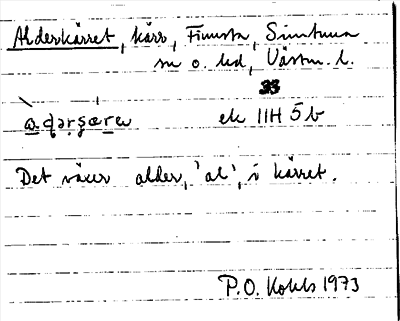 Alderkärret, kärr, Finnsta, Simtuna
sn o. hd, Västm. l.
33
ek 11H 5b
Det växer alder, 'al', i kärret.
P.O. Kohls 1973